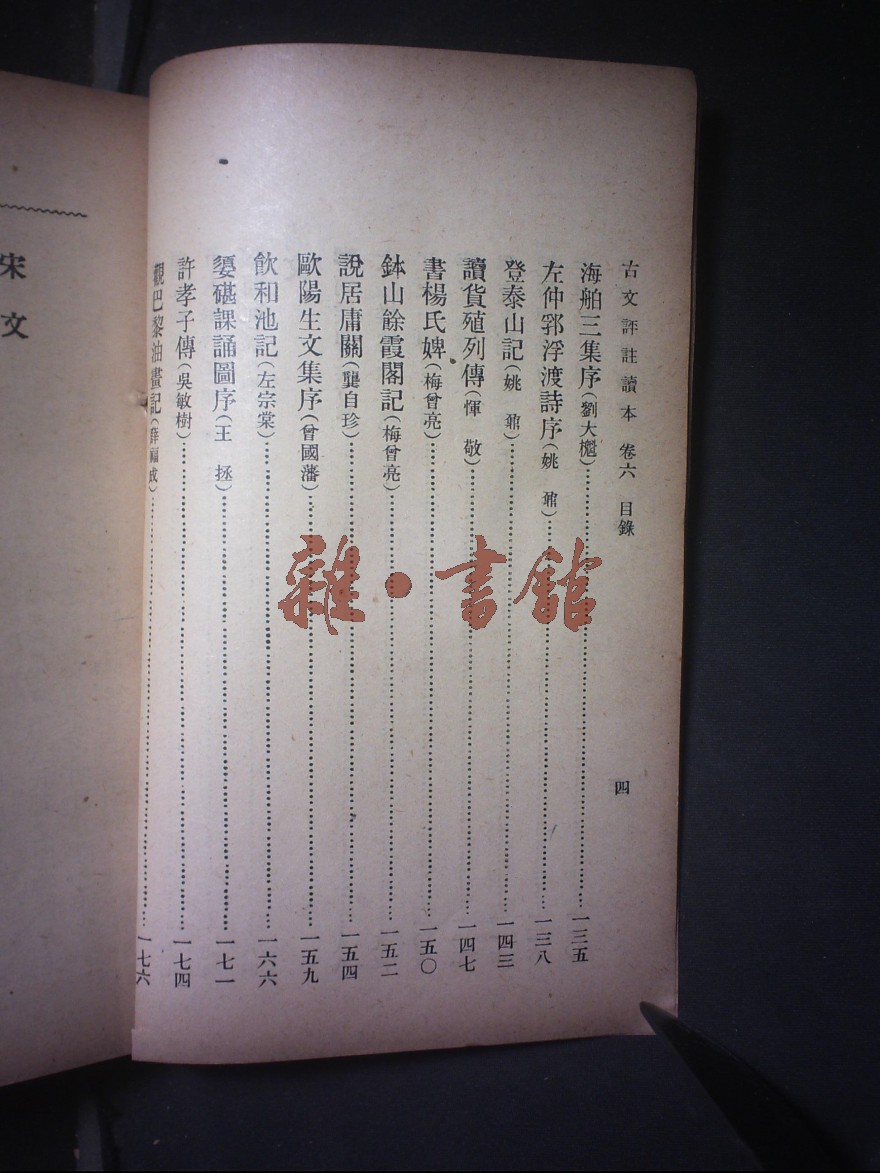 古文評註讀本 卷六 目錄 四
海舶三集序(劉大櫆)……一三五
左仲郛浮渡詩序(姚 鼐)……一三八
登泰山記(姚 鼐)……一四三
讀貨殖列傳(惲 敬)……一四七
書楊氏婢(梅曾亮)……一五〇
鉢山餘霞閣記(梅曾亮)……一五二
說居庸關(龔自珍)……一五四
歐陽生文集序(曾國藩)……一五九
飲和池記(左宗棠)……一六六
媭碪課誦圖序(王 拯)……一七一
許孝子傳(吳敏樹)……一七四
觀巴黎油畫記(薛福成)……一七六
宋文
雜·書館